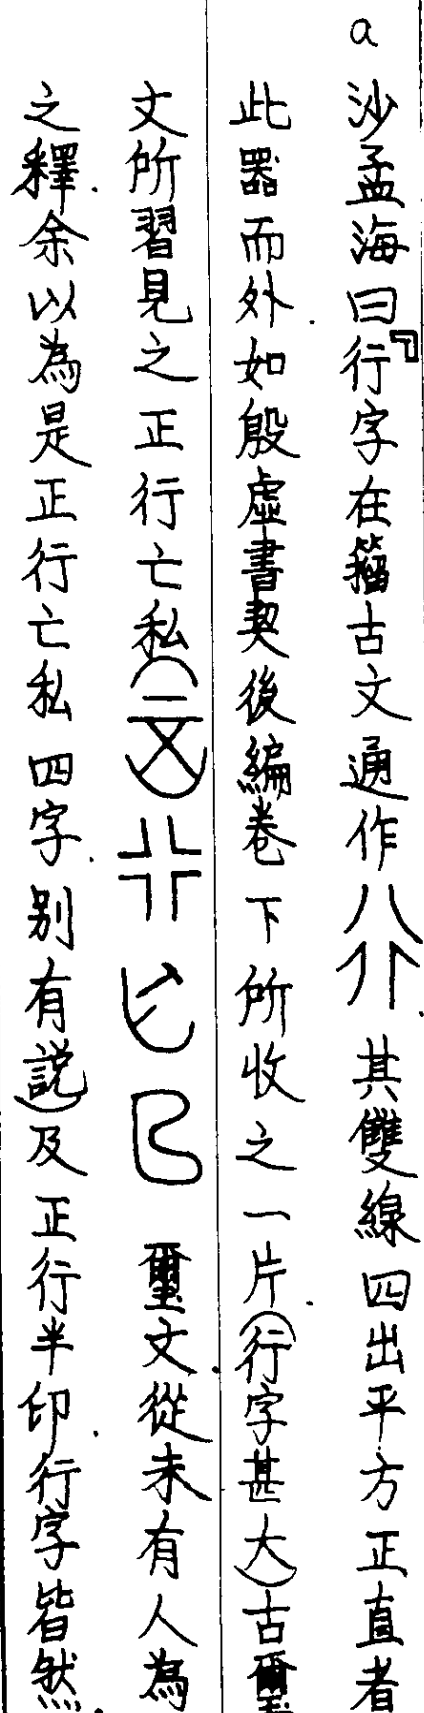 a 沙孟海曰『行字在籀古文通作 其雙線四出平方正直者
此器而外.如殷虛書契後編卷下所收之一片.(行字甚大)古璽
文所習見之正行亡私( 璽文.從未有人為
之釋.余以為是正行亡私四字.別有説)及正行半印.行字皆然.